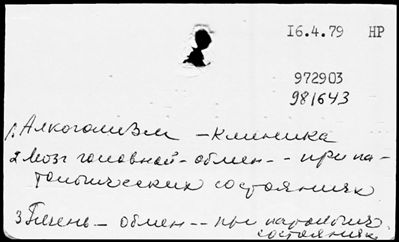 16.4.79 НР
972903
981643
1. Алкоголизм – клиника
2 Мозг головной – обмен -- при па-
тологических состояниях
3 Печень – обмен -- при патологич.
состояниях